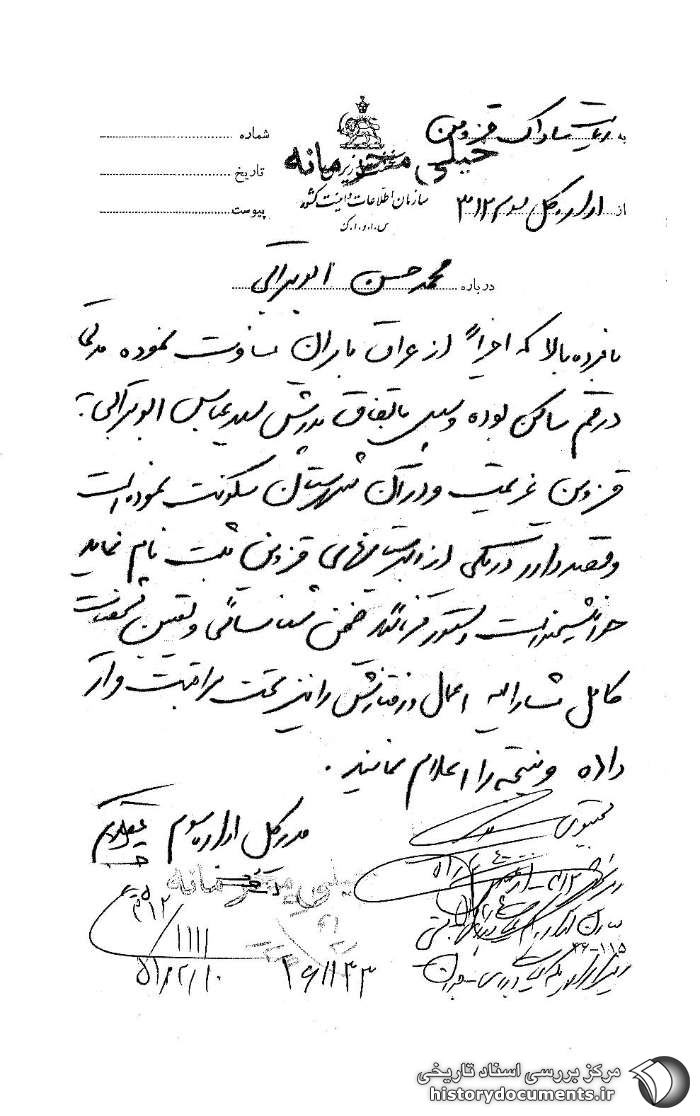 به ریاست ساواک قزوین
شماره
خیلی محرمانه
نخست وزیری
تاریخ
سازمان اطلاعات و امنیت کشور
از اداره کل سوم ۳۱۲
پیوست
س.ا.و.ا.ک
درباره محمد حسن ابوترابی
نامبرده بالا که اخیراً از عراق بایران مسافرت نموده مدتی
در قم ساکن بوده و سپس باتفاق پدرش سید عباس ابوترابی به
قزوین عزیمت و در آن شهرستان سکونت نموده است
و قصد دارد در یکی از دبیرستانهای قزوین ثبت نام نماید
خواهشمند است دستور فرمائید ضمن شناسائی و تعیین مشخصات
کامل مشارالیه اعمال و رفتارش را نیز تحت مراقبت قرار
داده و نتیجه را اعلام نمایند .
مدیر کل اداره سوم
خیلی محرمانه
۳۱۲
۱۱۱۱
۵۱/۲/۱۰
۲۶/۱۱۴۳
۳۱۲
۳۶-۱۱۵
مرکز بررسی اسناد تاریخی
historydocuments.ir